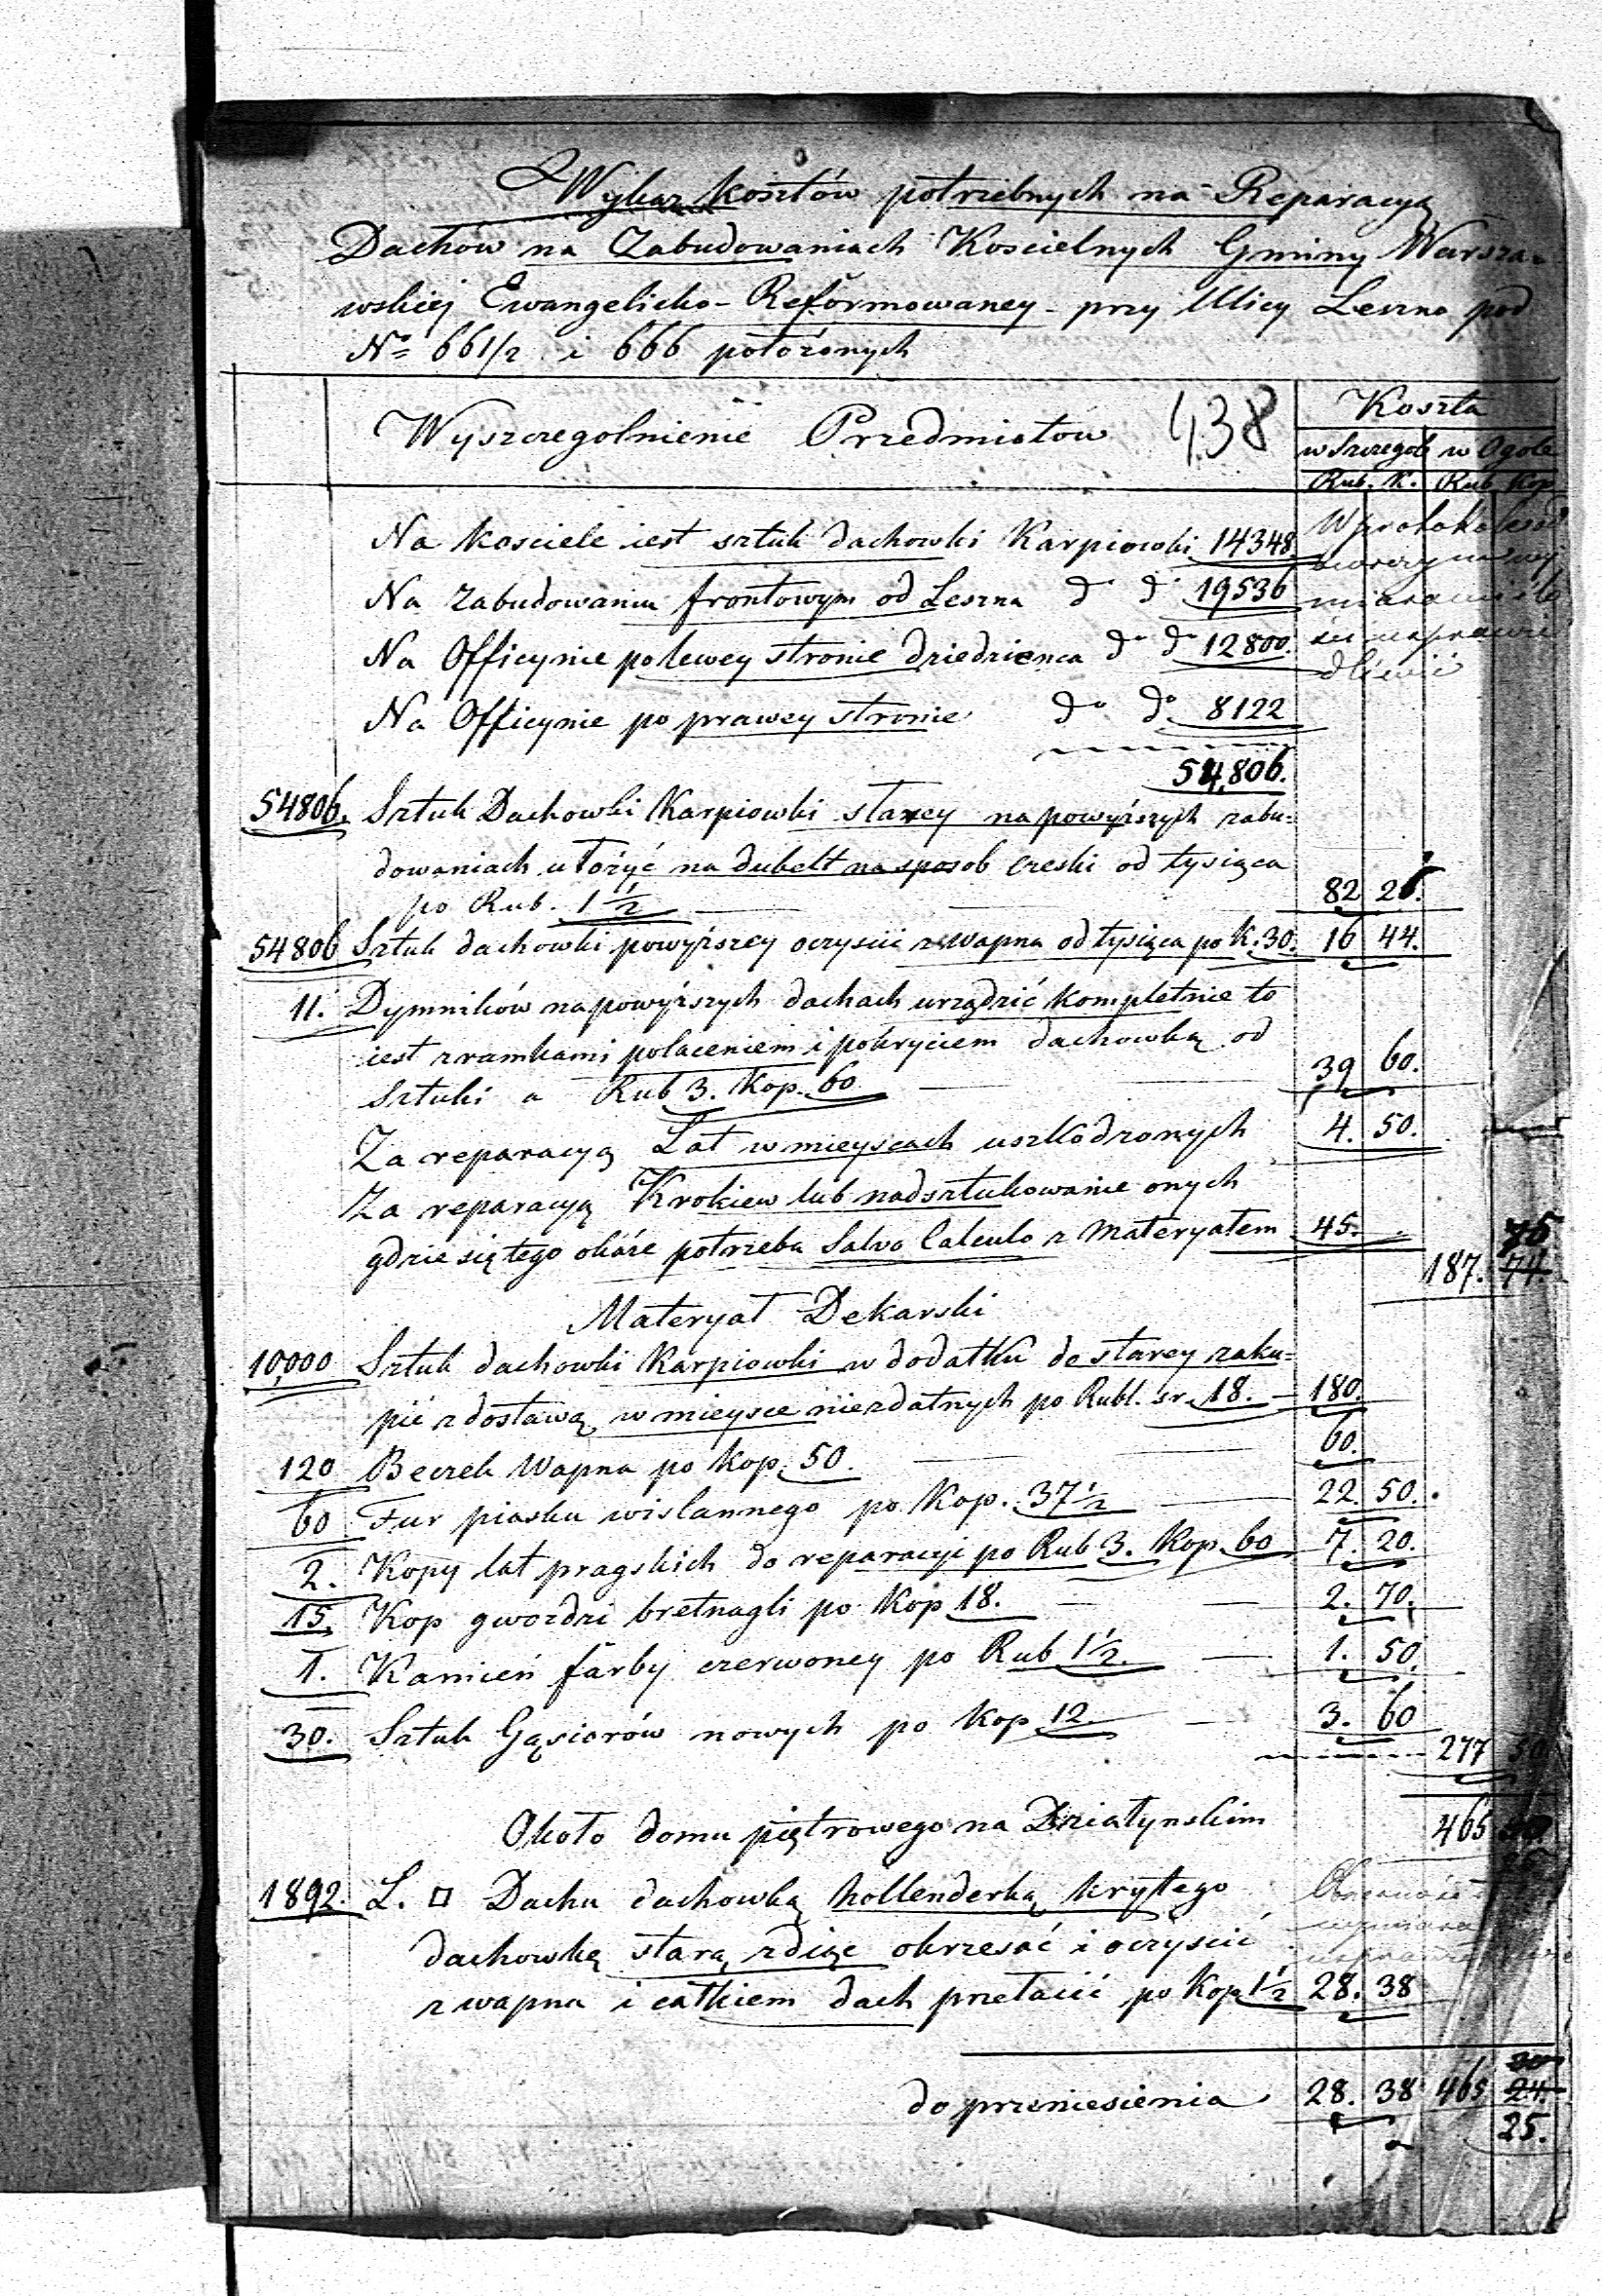 Wykaz kosztów potrzebnych na Reparacyą
Dachów na Zabudowaniach Koscielnych Gminy Warsza-
wskiej Ewangelicko-Reformowaney przy Ulicy Leszno pod
No 661/2 i 666 położonych
Wyszczegolnienie Przedmiotow 438 Koszta
w Szczegole w Ogole
Rub. K. Rub Kop
Na kosciele iest sztuk dachowki Karpiowki 14348
Na Zabudowaniu frontowym od Leszna do do 19536
Na Officynie po lewey stronie dziedzienca do do 12800.
Na Officynie po prawey stronie do do 8122
54,806.
54806. Sztuk Dachowki Karpiowki starey na powyższych zabu=
dowaniach ułożyć na dubelt na sposob czeski od tysiąca
po Rub. 1 1/2 82
54806 Sztuk dachowki powyższey oczyścić z wapna od tysiąca po K. 30. 16 44.
11. Dymników na powyższych dachach urządzić kompletnie to
iest z ramkami połaceniem i pokryciem dachowką od
Sztuki a Rub 3. Kop. 60 39 60.
Za reparacyą Łat w mieyscach uszkodzonych 4. 50.
Za reparacyą Krokiew lub nadsztukowanie onych
gdzie się tego okáże potrzeba Salvo Calculo z Materyałem 45.
187. 74.
Materyał Dekarski
10,000 Sztuk dachowki Karpiowki w dodatku do starey zaku=
pić z dostawą w mieysce niezdatnych po Rubl. sr. 18. 180.
120 Beczek Wapna po kop. 50. 60.
60 Fur piasku wislannego po Kop. 37 1/2 22. 50.
2. Kopy łat pragskich do reparacyi po Rub 3. Kop. 60 7. 20.
15. Kop gwozdzi bretnagli po Kop 18. 2. 70.
1. Kamień farby czerwoney po Rub 1 1/2. 1. 50.
30. Sztuk Gąsiorów nowych po Kop 12. 3. 60
277 50
Około domu piętrowego na Działynskim 465
1892. Ł. □ Dachu dachowką hollenderką krytego
dachowkę starą zdiąć okrzesać i oczyscić
z wapna i całkiem dach przełacić po Kop 1 1/2 28. 38
do przeniesienia 28. 38 465 24.
25.